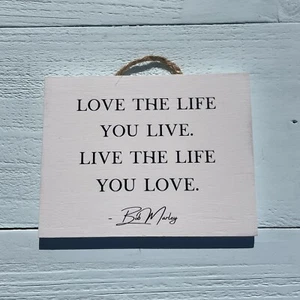 LOVE THE LIFE
YOU LIVE.
LIVE THE LIFE
YOU LOVE.
- Bob Marley